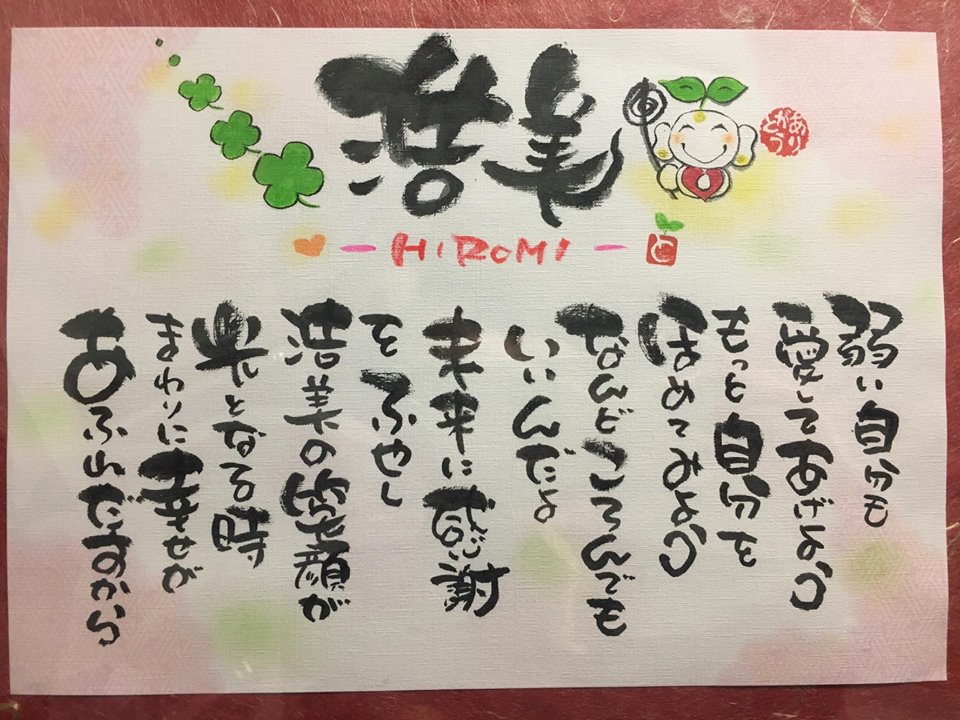 浩美
ありがとう
HIROMI
弱い自分も
愛してあげよう
もっと自分を
ほめてみよう
なんどころんでも
いいんだよ
未来に感謝
をふやし
浩美の笑顔が
光となる時
まわりに幸せが
あふれだすから